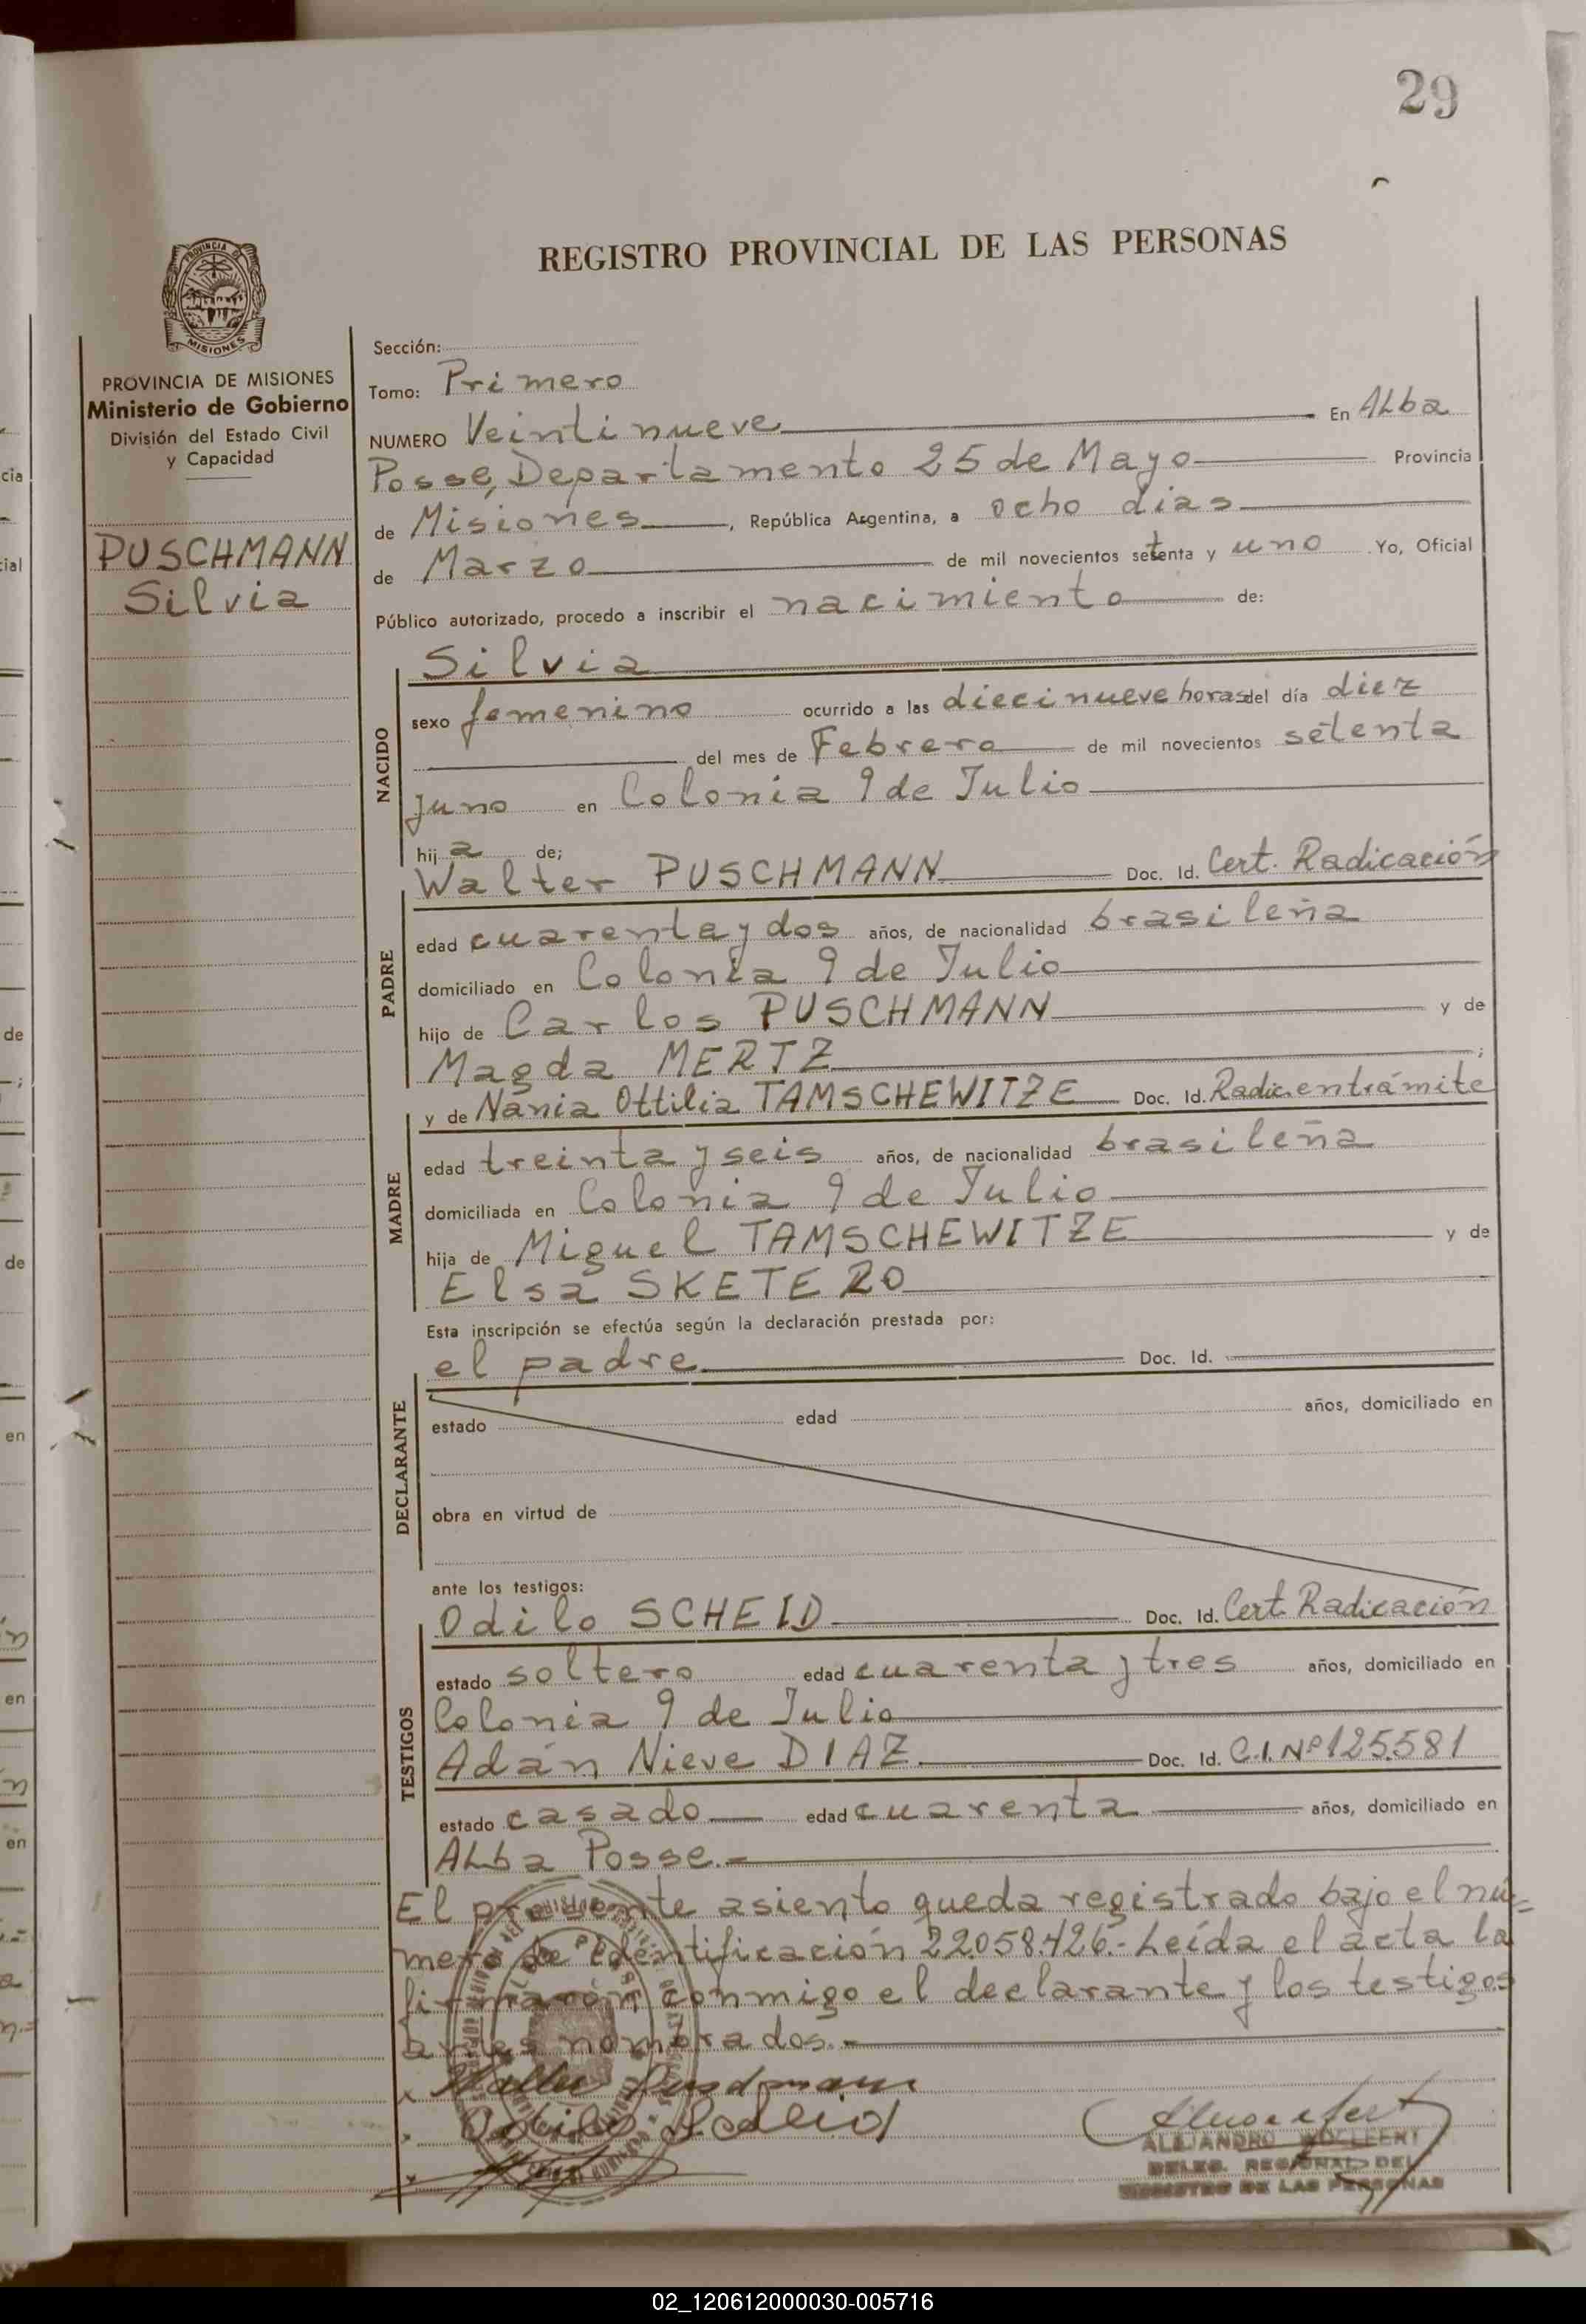 29
REGISTRO PROVINCIAL DE LAS PERSONAS
PROVINCIA DE
MISIONES
PROVINCIA DE MISIONES
Ministerio de Gobierno
División del Estado Civil
y Capacidad
PUSCHMANN
Silvia
Sección:
Tomo: Primero
NUMERO Veintinueve En ALba
Posse, Departamento 25 de Mayo Provincia
de Misiones, República Argentina, a ocho dias
de Marzo de mil novecientos setenta y uno Yo, Oficial
Público autorizado, procedo a inscribir el nacimiento de:
NACIDO
Silvia
sexo femenino ocurrido a las diecinueve horas del día diez
del mes de Febrero de mil novecientos setenta
y uno en Colonia 9 de Julio
hij a de;
PADRE
Walter PUSCHMANN Doc. Id. Cert. Radicación
edad cuarenta y dos años, de nacionalidad brasileña
domiciliado en Colonia 9 de Julio
hijo de Carlos PUSCHMANN y de
Magda MERTZ ;
MADRE
y de Nania Ottilia TAMSCHEWITZE Doc. Id. Radic. en trámite
edad treinta y seis años, de nacionalidad brasileña
domiciliada en Colonia 9 de Julio
hija de Miguel TAMSCHEWITZE y de
Elsa SKETERO
Esta inscripción se efectúa según la declaración prestada por:
DECLARANTE
el padre Doc. Id.
estado edad años, domiciliado en
obra en virtud de
ante los testigos:
TESTIGOS
Odilo SCHEID Doc. Id. Cert. Radicación
estado soltero edad cuarenta y tres años, domiciliado en
Colonia 9 de Julio
Adán Nieve DIAZ Doc. Id. C.I. Nº 125.581
estado casado edad cuarenta años, domiciliado en
ALba Posse.-
El presente asiento queda registrado bajo el nú-
mero de identificación 22.058.426.- Leída el acta la
firmarón conmigo el declarante y los testigos
antes nombrados.-
Odilo Scheid
ALEJANDRO
DELEG. REGIONAL DEL
REGISTRO DE LAS PERSONAS
02_120612000030-005716